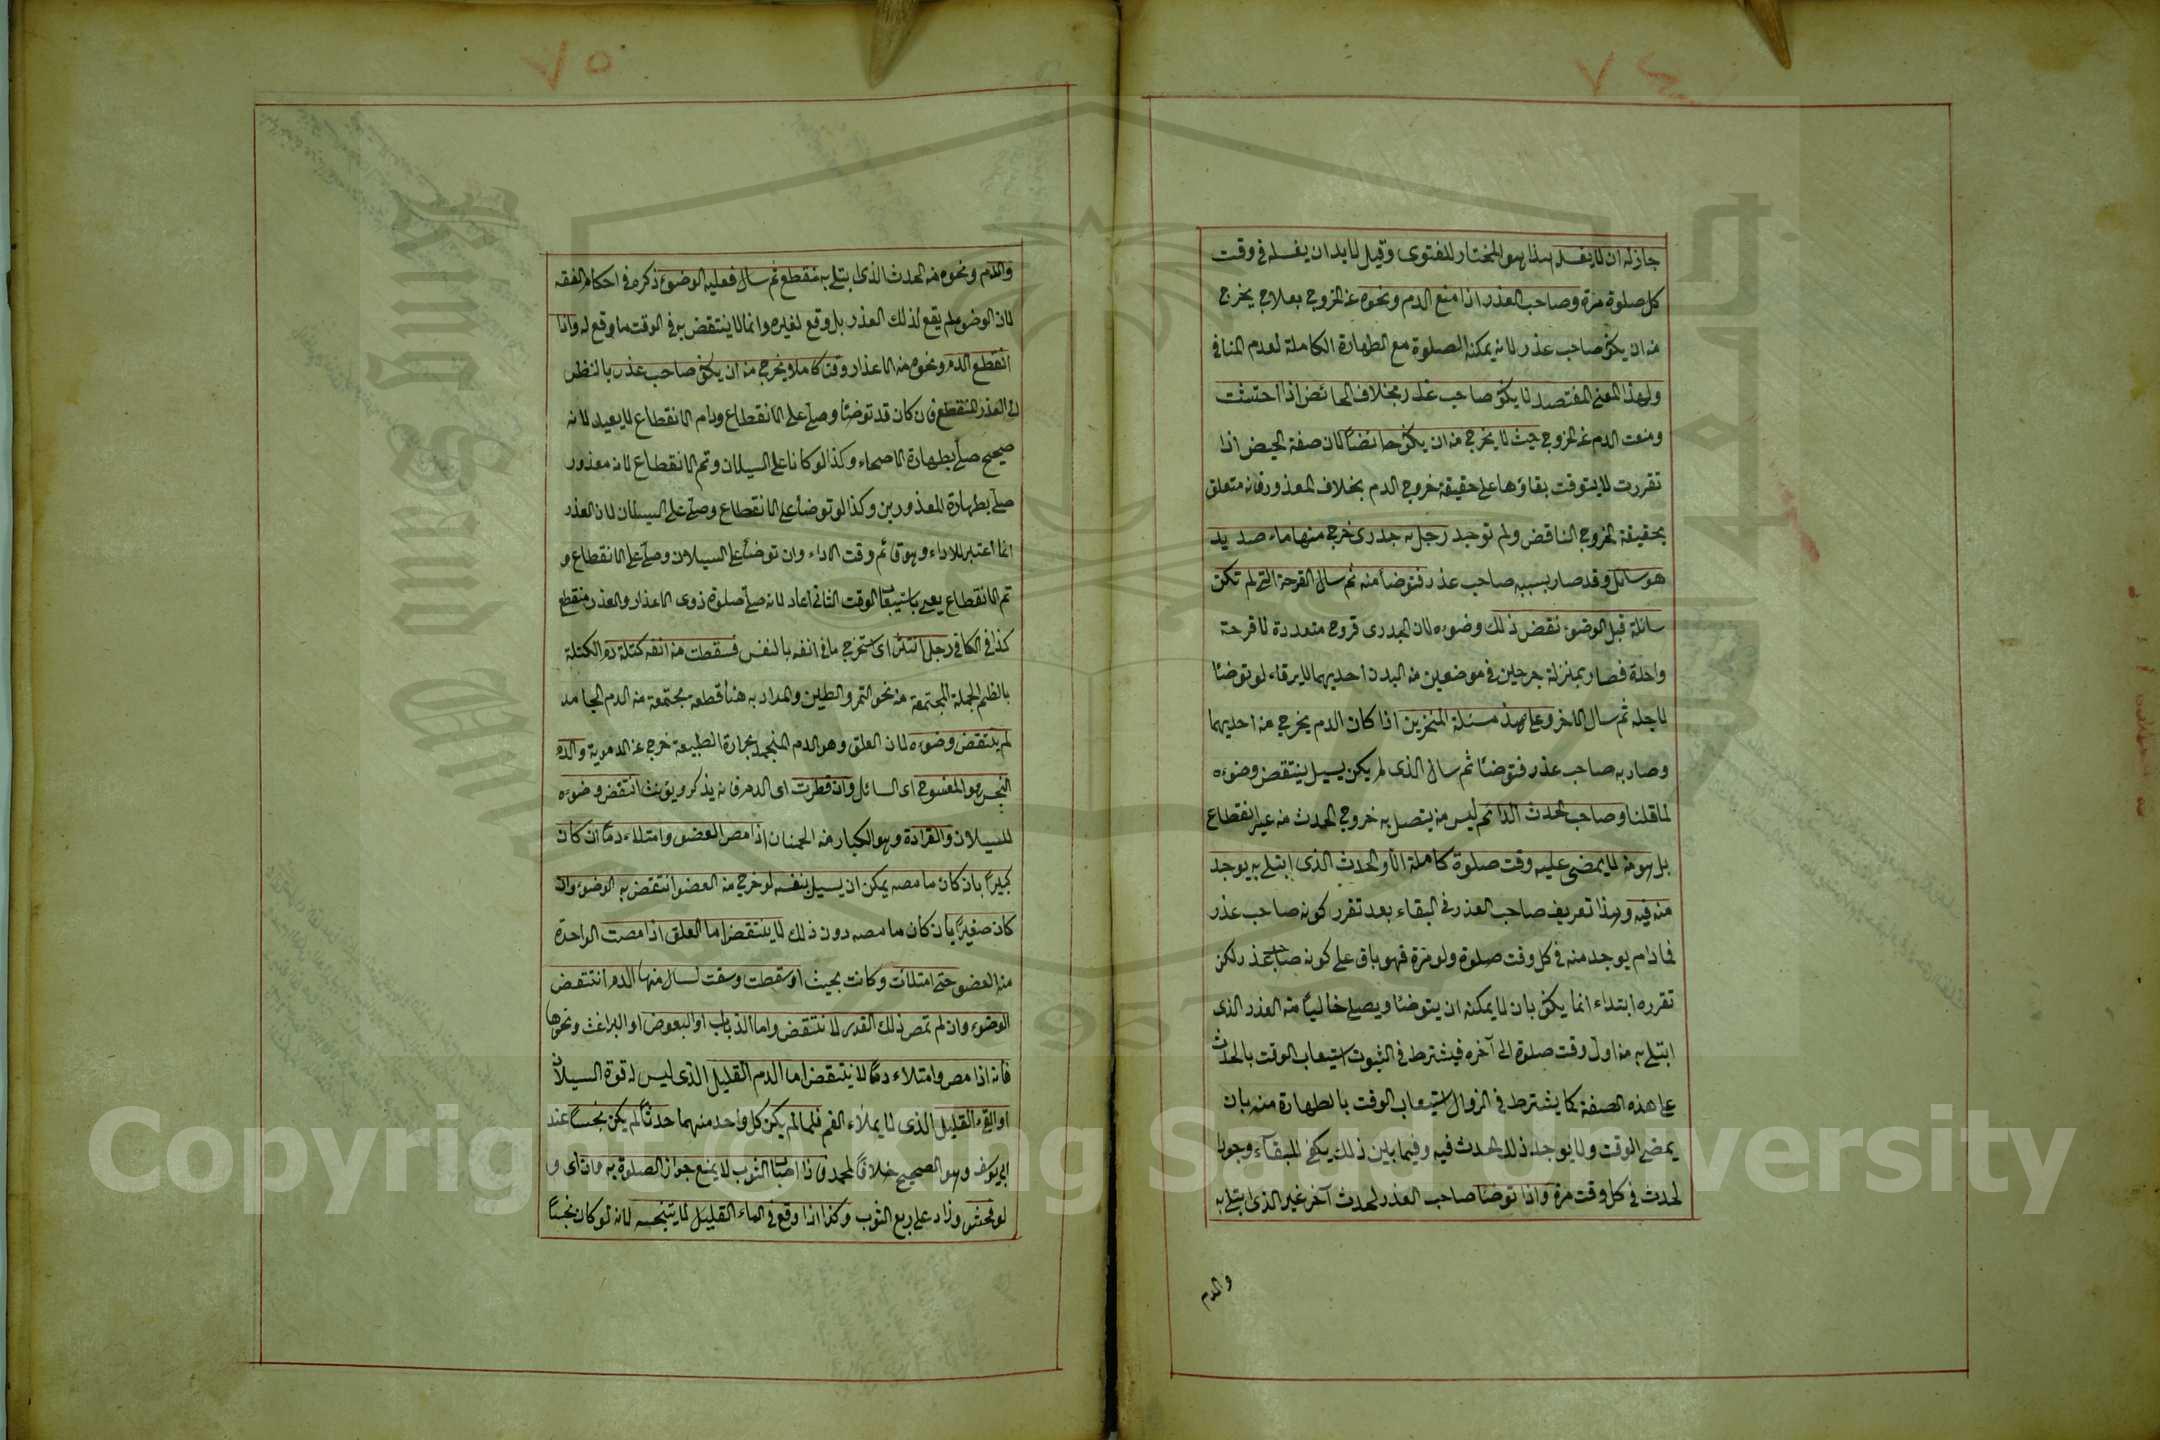 جاز له ان لا يغسله هذا هو المختار للفتوى وقيل لا بد ان يغسله في وقت
كل صلوة مرة وصاحب العذر اذا منع الدم ونحوه عن الخروج بعلاج يخرج
من ان يكون صاحب عذر لانه يمكنه الصلوة مع الطهارة الكاملة لعدم المنافي
ولهذا المعنى المفتصد لا يكون صاحب عذر بخلاف الحائض اذا احتشت
ومنعت الدم عن الخروج حيث لا يخرج من ان يكون حائضا لان صفة الحيض اذا
تقررت لا يتوقت بقاؤها على حقيقة خروج الدم بخلاف المعذور فانه متعلق
بحقيقة الخروج الناقض ولم توجد رجل به جدري خرج منها ماء صديد
هو سائل وقد صار بسببه صاحب عذر فتوضأ منه ثم سال القرحة التي لم تكن
سائلة قبل الوضوء نقض ذلك وضوءه لان الجدري قروح متعددة لا قرحة
واحدة فصار بمنزلة جرحين في موضعين من البدن احديهما لا يرقاء لو توضئا
لاجله ثم سال الاخر وعلى هذا مسئلة المنخرين اذا كان الدم يخرج من احديهما
وصار به صاحب عذر فتوضئا ثم سال الذى لم يكن يسيل ينتقض وضوءه
لما قلنا وصاحب الحدث الدائم ليس من يتصل به خروج الحدث من غير انقطاع
بل هو من لا يمضي عليه وقت صلوة كاملة الا والحدث الذى ابتلي به يوجد
منه فيه وهذا تعريف صاحب العذر في البقاء بعد تقرر كونه صاحب عذر
فما دام يوجد منه في كل وقت صلوة ولو مرة فهو باق على كونه صاحب عذر لكن
تقرره ابتداء انما يكون بان لا يمكنه ان يتوضئا ويصلي خاليا من العذر الذى
ابتلي به من اول وقت صلوة الى آخره فيشترط في الثبوت استيعاب الوقت بالحدث
على هذه الصفة كما يشترط في الزوال استيعاب الوقت بالطهارة منه بان
يمضي الوقت ولا يوجد ذلك الحدث فيه وفيما بين ذلك يكفي للبقآء وجود
الحدث في كل وقت مرة واذا توضئا صاحب العذر لحدث آخر غير الذى ابتلي به
والدم
والدم ونحوه من الحدث الذى ابتلي به منقطع ثم سال فعليه الوضوء ذكره في احكام الفقه
لان الوضوء لم يقع لذلك العذر بل وقع لغيره وانما لا ينتقض به في الوقت ما وقع له واذا
انقطع الدم ونحوه من الاعذار وقتا كاملا يخرج من ان يكون صاحب عذر بالنظر
الى العذر المنقطع فان كان قد توضئا وصلى على الانقطاع ودام الانقطاع لا يعيد لانه
صحيح صلى بطهارة الاصحاء وكذا لو كانا على السيلان وتم الانقطاع لانه معذور
صلى بطهارة المعذورين وكذا لو توضأ على الانقطاع وصلى على السيلان لان العذر
انما اعتبر للاداء وهو قائم وقت الاداء وان توضأ على السيلان وصلى على الانقطاع و
تم الانقطاع يعني باستيعاب الوقت الثاني اعاد لانه صلى صلوة ذوى الاعذار والعذر منقطع
كذا في الكافي رجل انتثر اى استخرج ما في انفه بالنفس فسقطت من انفه كتلة دم الكتلة
بالظم الجملة المجتمعة من نحو التمر والطين والمراد به هنا قطعة مجتمعة من الدم الجامد
لم ينتقض وضوءه لان العلق وهو الدم المنجمد بحرارة الطبيعة خرج عن الدموية والدم
النجس هو المفسوح اى السائل وان قطرت اى الدم فانه يذكر ويؤنث انتقض وضوءه
للسيلان والقرادة وهو الكبار من الحمنان اذا مص العضو وامتلاء دما ان كان
كبيرا بان كان ما مصه يمكن ان يسيل بنفسه لو خرج من العضو انتقض به الوضوء وان
كان صغيرا بان كان ما مصه دون ذلك لا ينتقض اما العلق اذا مصت الواحدة
من العضو حتى امتلئت وكانت بحيث لو سقطت وشقت لسال منها الدم انتقض
الوضوء وان لم تمص ذلك القدر لا ينتقض واما الذباب او البعوض او البراغث ونحوها
فانه اذا مص وامتلاء دما لا ينتقض اما الدم القليل الذى ليس له قوة السيلان
او القيء القليل الذى لا يملاء الفم فلما لم يكن كل واحد منهما حدثا لم يكن نجسا عند
ابى يوسف وهو الصحيح خلافا لمحمد فاذا اصاب الثوب لا يمنع جواز الصلوة به وان اى و
لو فحش وزاد على ربع الثوب وكذا اذا وقع في الماء القليل لا يتنجسه لانه لو كان نجسا